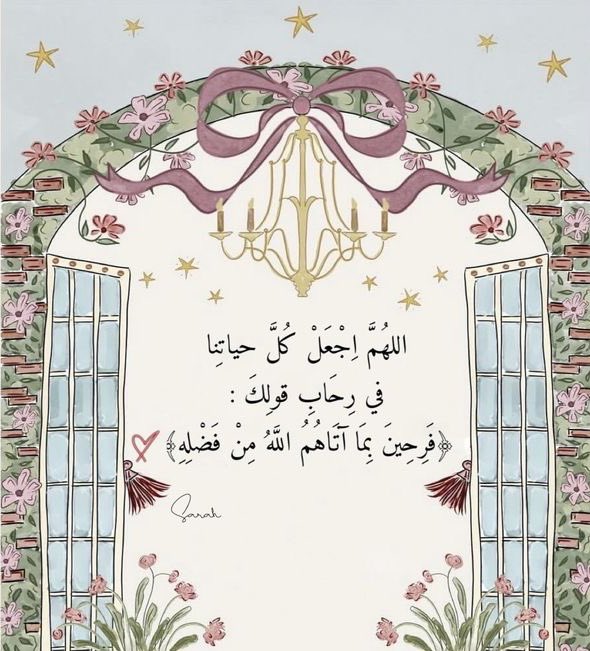 اللهُمَّ اِجْعَلْ كُلَّ حياتِنا
في رِحَابِ قولِكَ :
﴿فَرِحِينَ بِمَا آتَاهُمُ اللَّهُ مِنْ فَضْلِهِ﴾
Sarah